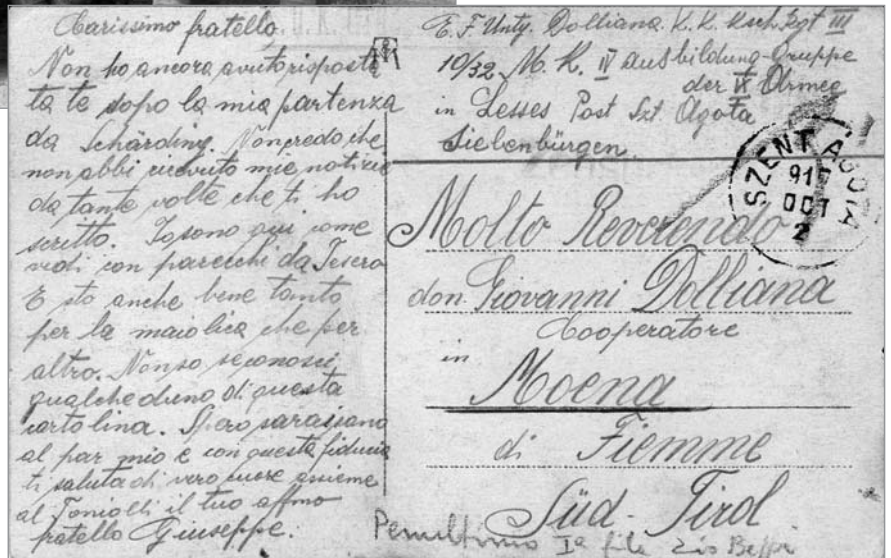 Carissimo fratello,
Non ho ancora avuto risposta
ta te dopo la mia partenza
da Schärding. Non credo che
non abbi ricevuto mie notizie
da tante volte che ti ho
scritto. Io sono qui come
vedi con parecchi da Tesero
E sto anche bene tanto
per la maiolica che per
altro. Non so se conosci
qualcheduno di questa
cartolina. Spero sarai sano
al par mio e con questa fiducia
ti saluta di vero cuore assieme
al Toniolli il tuo affmo
fratello Giuseppe.
E. F. Untg. Dolliana. K. K. Ksch. Rgt III
10/32 M. K. IV Ausbildung-Gruppe
der Armee
in Lesses Post Szt. Agota
Siebenbürgen.
SZENT AGOTA
OCT
2
Molto Reverendo
don Giovanni Dolliana
Cooperatore
in
Moena
di Fiemme
Süd-Tirol
Penultimo Iª fila zio Beppi